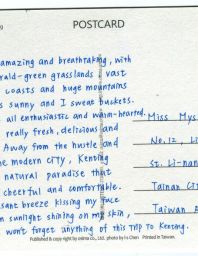 9
POSTCARD
amazing and breathtaking, with
rald-green grasslands, vast
coasts and huge mountains
s sunny and I sweat buckets.
all enthusiastic and warm-hearted.
really fresh, delicious and
Away from the hustle and
e modern city, Kenting
natural paradise that
cheerful and comfortable.
sant breeze kissing my face
n sunlight shining on my skin,
won't forget anything of this trip to Kenting.
Miss Mys
No.12, Li
St. Li-nan
Tainan Cit
Taiwan
Published & copy right by Printed in Taiwan.